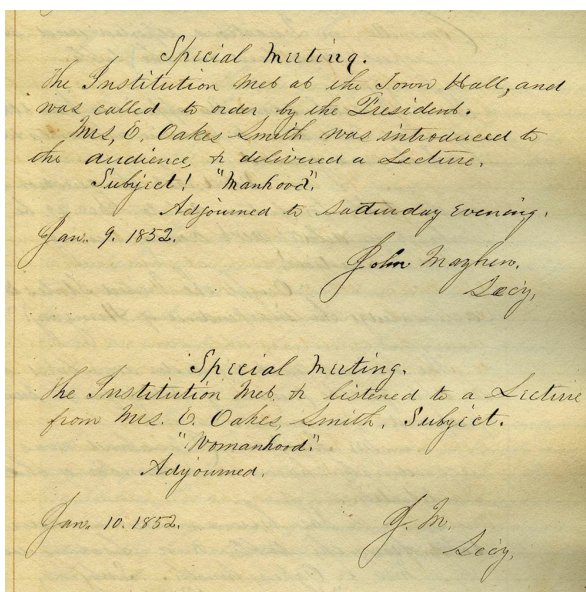 Special Meeting.
The Institution met at the Town Hall, and
was called to order by the President.
Mrs, E. Oakes Smith was introduced to
the audience, & delivered a Lecture.
Subject! "Manhood".
Adjourned to Satturday Evening.
Jan. 9. 1852.
John Mayhew,
Secy,
Special Meeting.
The Institution Met & listened to a Lecture
from Mrs. E. Oakes Smith, Subject.
"Womanhood".
Adjourned.
Jan. 10. 1852.
J. M.
Secy,